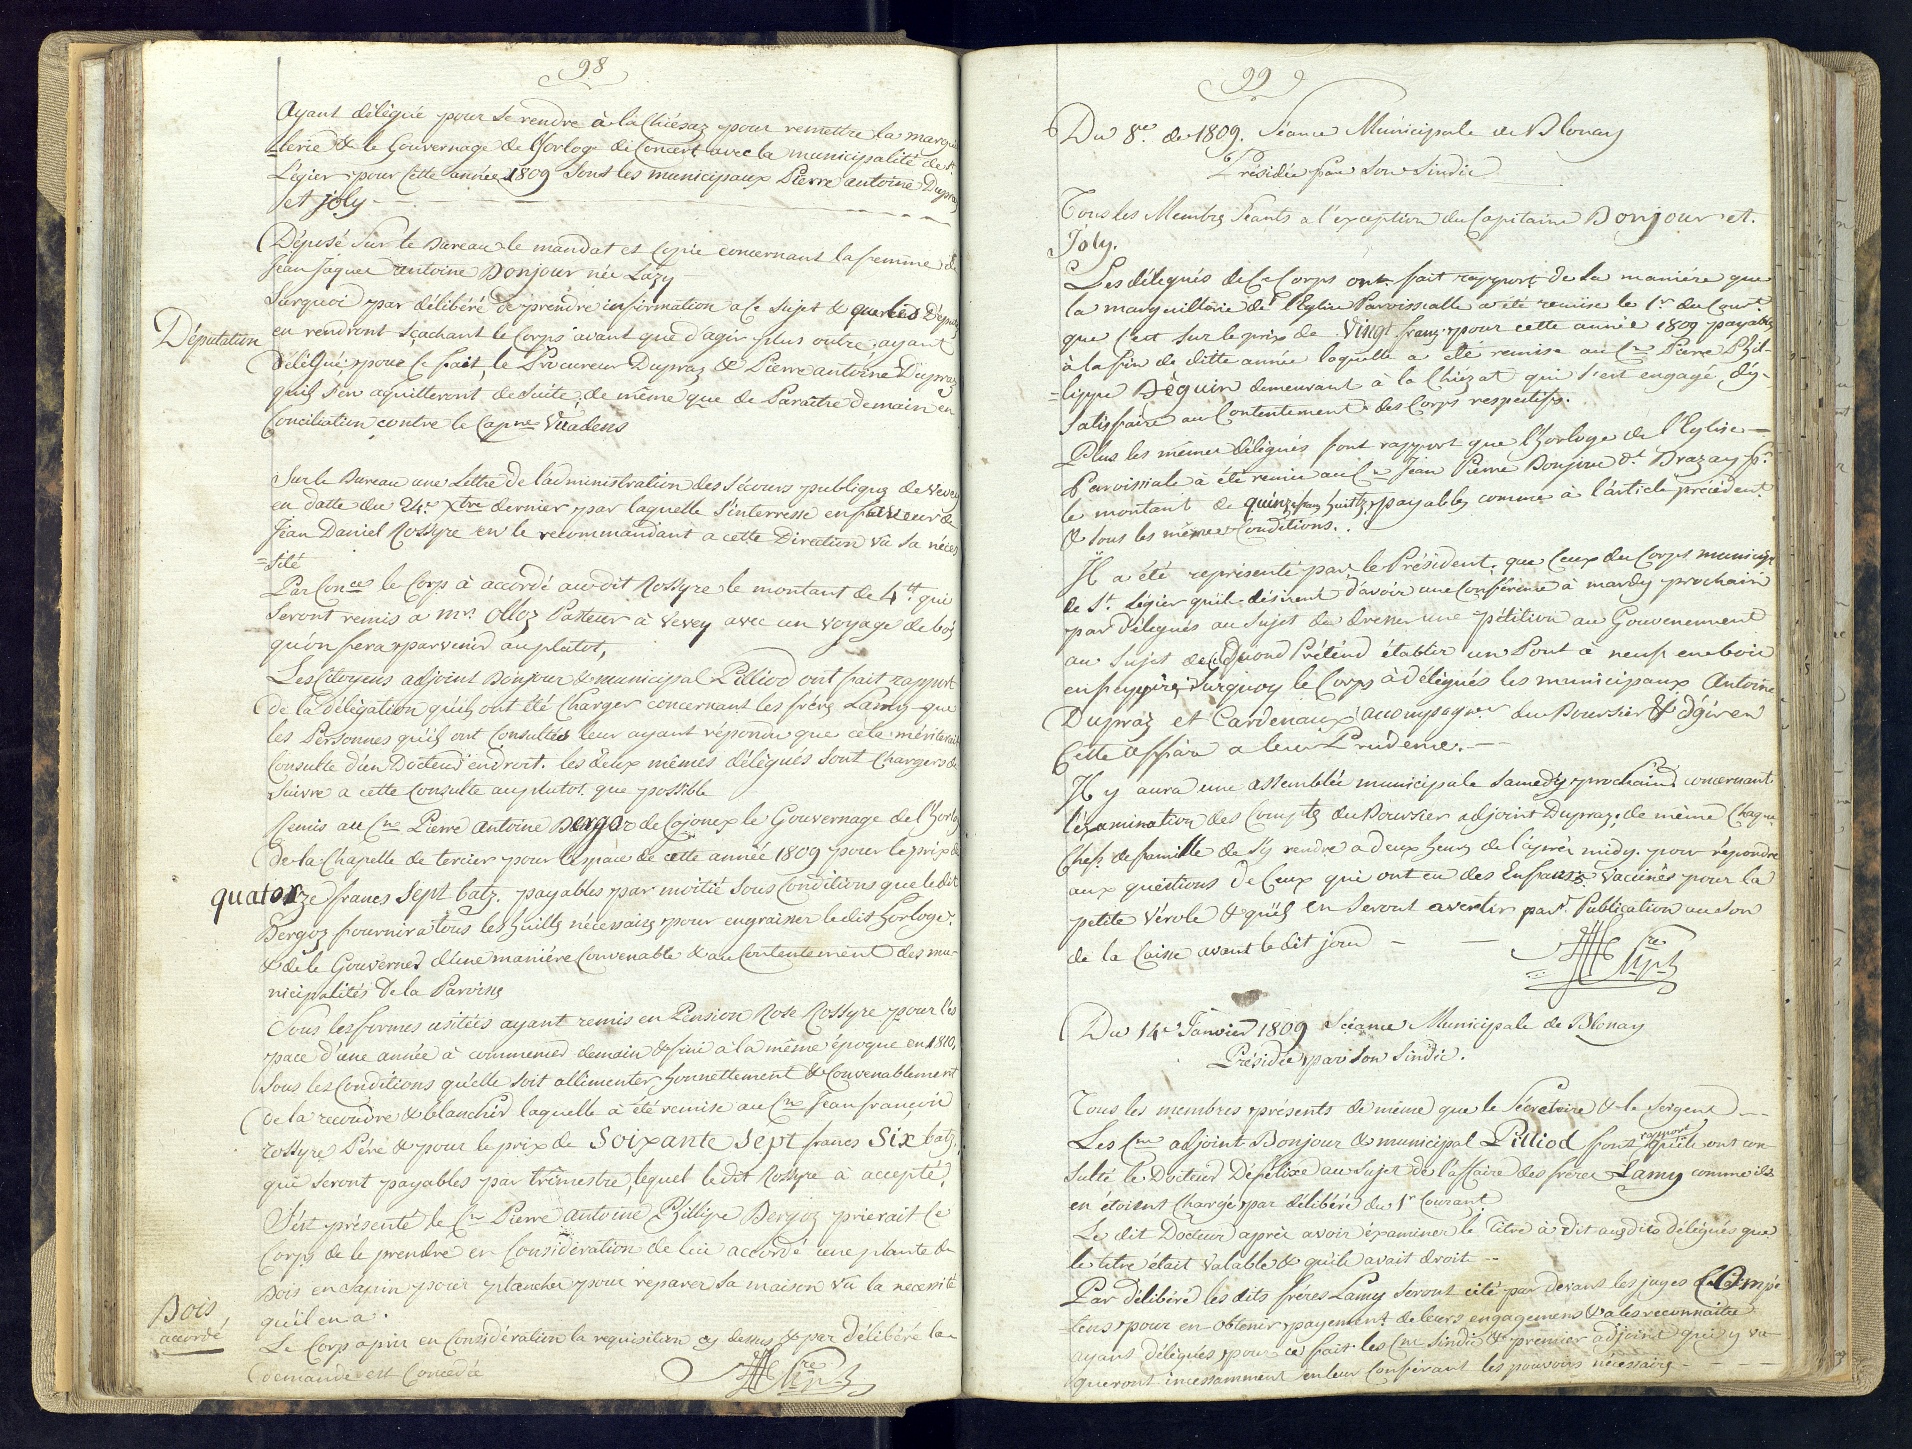 98
Ayant délégué pour se rendre à la Chiésaz pour remettre la marguil
=lerie & le Gouvernage de l'horloge de Concert avec la municipalité de St
Légier pour cette année 1809 sont les municipaux Pierre antoine Dupraz
et joly
Déposé sur le Bureau le mandat et Copie concernant la femme de
Jean Jaques antoine Bonjour née Lazy
Surquoi par délibéré de prendre information a ce sujet & que les Députés
en rendront sçachant le Corps avant que d'agir plus outre, ayant
Députation
délégué pour ce fait, le Procureur Dupraz & Pierre antoine Dupraz
quils s'en aquitteront de suite, de même que de Paraître demain en
Conciliation contre le Capne Viiadens
Sur le Bureau une Lettre de l'administration des sécours publiques de Vevey
en datte du 24e Xbre dernier par laquelle s'interresse en faveur de
Jean Daniel Rossyre en le recommandant a cette Direction vû sa néces
=sité
Par Conce le Corps à accordé audit Rossyre le montant de 4 tt qui
seront remis a mr Olloz Pasteur à Vévey avec un voyage de bois
qu'on fera parvenir auplutot,
Les Citoyens adjoint Bonjour & municipal Pilliod ont fait rapport
de la délégation qu'ils ont été Charger concernant les fréres Lamy que
les Personnes qu'ils ont Consultés leur ayant répondu que cela mériterait
Consulte d'un Docteur en droit. les deux mêmes délégués sont Chargers de
suivre a cette Consulte auplutot que possible
Remis au Cn Pierre Antoine Bergoz de Cojonex le Gouvernage de l'horloge
de la Chapelle de tercier pour l'espace de cette année 1809 pour le prix de
quatorze francs Sept batz. payables par moitié sous Conditions que le dit
Bergoz fournira tous les huilles nécessaires pour engraisser le dit horloge.
& de le Gouverner d'une maniére Convenable & au Contentement des mu-
nicipalités de la Paroisse
Sous les formes usitées ayant remis en Pension Rose Rossyre pour l'es
pace d'une année à commencer demain & finie à la même époque en 1810.
Sous les Conditions qu'elle soit allimenter honnettement & Convenablement
de la recoudre & blanchir laquelle à été remise au Cn Jean françois
rossyre Péré & pour le prix de Soixante Sept francs Six batz.
qui seront payables par trimestre, lequel le dit Rossyre à accepté,
S'est présenté le Cn Pierre Antoine Phillipe Bergoz prierait ce
Corps de le prendre en Considération de lui accordé une plante de
Bois en Sapin pour plancher pour réparer sa maison vû la necessité
qu'il en a.
Bois
accordé
Le Corps apris en Considération la requisition cy dessus & par délibéré la
demande est Concédé
99
Du 8e de 1809. Séance Municipale de Blonay
Présidée par Son Sindic
Tous les Membres Séants a l'exception du Capitaine Bonjour et
Joly.
Les délégués de Ce Corps ont fait rapport de la maniére que
la marguillerie de l'Eglise Paroissialle a été remise le 1r du Court
que c'est sur le prix de Vingt franz pour cette année 1809 payables
à la fin de ditte année laquelle a été remise au Cn Pierre Phil-
=lippe Béguin demeurant à la Chiézat qui s'est engagé d'y-
satisfaire au Contentement des Corps respectifs.
Plus les mêmes délégués font rapport que l'horloge de l'Eglise
Paroissiale à été remis au Cn Jean Pierre Bonjour dt Brazay pr
le montant de quinze franz huit tz payables comme à l'article précédent
& sous les mêmes Conditions.
Il a été représenté par le Président, que Ceux du Corps municipl
de St Légier qu'ils désirent d'avoir une Conférence à mardy prochain
par délegués au sujet de dresser une pétition au Gouvernement
au sujet de ce quond Prétend établir un Pont à neuf en bois
en feygire, Surquoy le Corps à délégués les municipaux Antoine
Dupraz et Cardenaux acompagner du Boursier & d'agir en
Cette affaire a leur Prudence.
Il y aura une assemblée municipale Samedy prochain concernant
l'éxamination des Comptes du Boursier adjoint Dupraz, de même Chaque
Chefs de famille de s'y rendre a deux heures de l'après midy. pour répondre
aux questions de Ceux qui ont eu des Enfans Vaccinés pour la
petite Vérole & qu'ils en seront avertir par Publication au son
de la Caisse avant le dit jour
Du 14e Janvier 1809 Séance Municipale de Blonay
Présidée par Son Sindic.
Tous les membres présents de même que le Sécretaire & le Sergent
Les Cns adjoint Bonjour & municipal Pilliod font rapport qu'ils ont con
sulté le Docteur Dépélixe au sujet de l'affaire des fréres Lamy comme ils
en étoient Chargé par délibéré du 1r Courant.
Le dit Docteur après avoir éxaminer le Titre à dit ausdits délégués que
le titre était Valable & qu'ils avait droit
Par délibéré les dits fréres Lamy seront cité par devant les juges Compé
tens pour en obtenir payement de leurs engagemens & a les reconnaitre
ayant délégués pour ce fait les Cns Sindic & premier adjoint qui y va
queront incessamment en leur Conférant les pouvoirs nécessaires